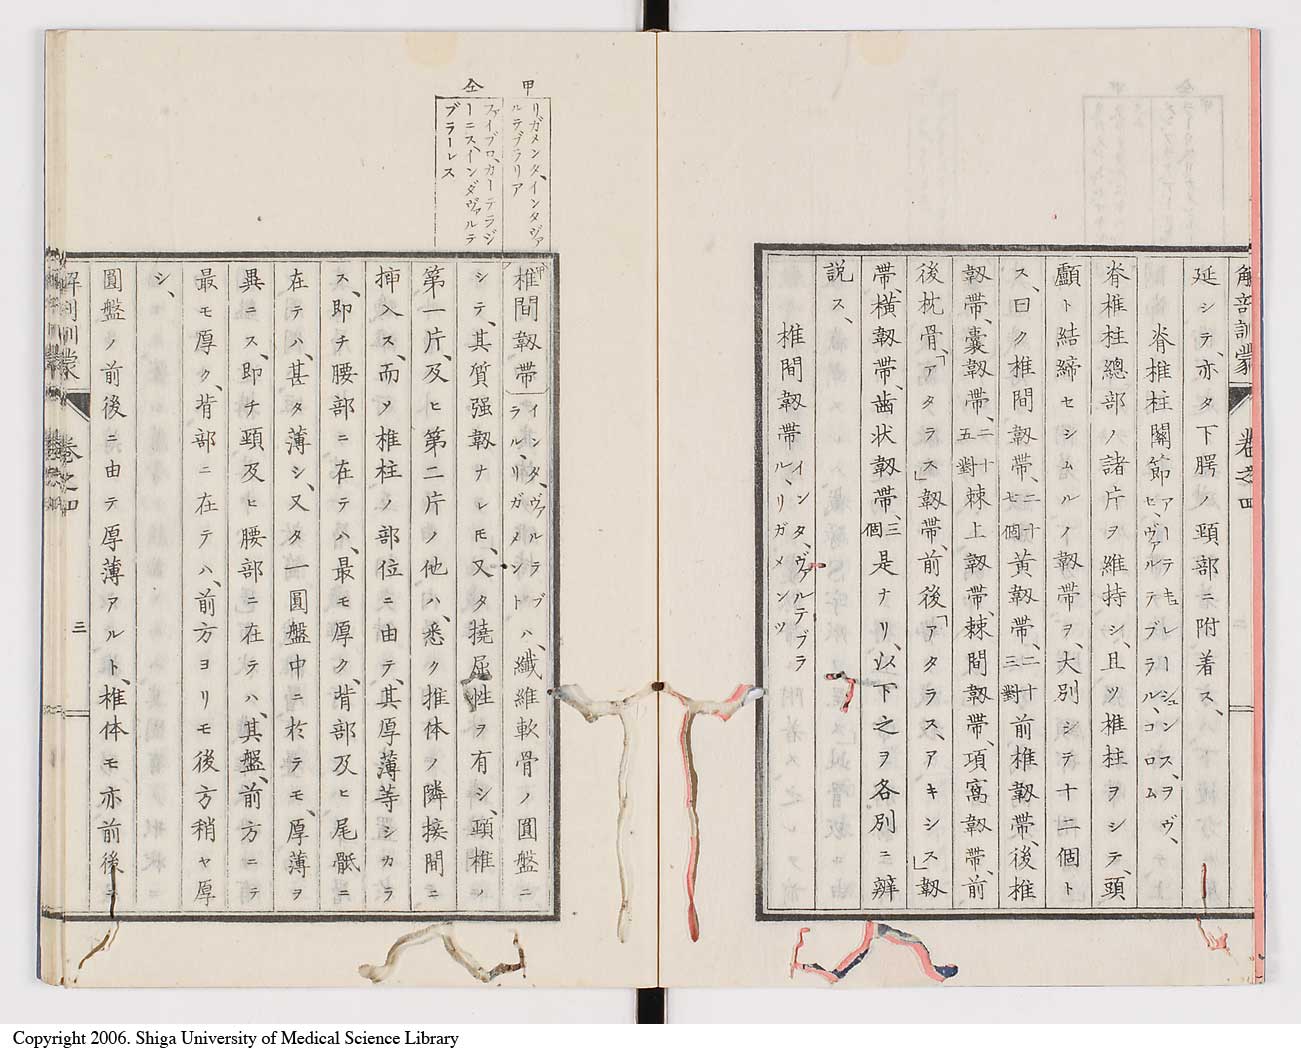 解剖訓蒙 卷之四
延シテ、亦タ下腭ノ頸部ニ附着ス、
脊椎柱關節アーテキュレーシュンス、ヲヴ、ヒ、ヴァルテブラル、コロム
脊椎柱總部ノ諸片ヲ維持シ、且ツ椎柱ヲシテ、頭
顱ト結締セシムルイ韌帶ヲ、大別シテ十二個ト
ス、曰ク椎間韌帶、二十七個黃韌帶、二十三對前椎韌帶、後椎
韌帶、囊韌帶、二十五對棘上韌帶、棘間韌帶、項窩韌帶、前
後枕骨、「アタラス」韌帶、前後「アタラス、アキシス」韌
帶、橫韌帶、齒狀韌帶三個是ナリ、以下之ヲ各別ニ辨
說ス、
椎間韌帶インタ、ヴァルテブラル、リガメンツ
甲 リガメンタ、インタヴァルテブラリア
仝 ファイブロ、カーテラジーニス、インダヴァルテブラーレス
椎間韌帶インタ、ヴァルラブラル、リガメントハ、纖維軟骨ノ圓盤ニ
シテ、其質强韌ナレモ、又タ撓屈性ヲ有シ、頸椎ノ
第一片、及ヒ第二片ノ他ハ、悉ク推体ノ隣接間ニ
揷入ス、而ソ椎柱ノ部位ニ由テ、其厚薄等シカラ
ス、即チ腰部ニ在テハ、最モ厚ク、背部及ヒ尾骶ニ
在テハ、甚タ薄シ、又タ一圓盤中ニ於テモ、厚薄ヲ
異ニス、即チ頸及ヒ腰部ニ在テハ、其盤、前方ニテ
最モ厚ク、背部ニ在テハ、前方ヨリモ後方稍ヤ厚
シ、
圓盤ノ前後ニ由テ厚薄アルト、椎体モ亦前後ニ
解剖訓蒙 卷之四 三
Copyright 2006. Shiga University of Medical Science Library